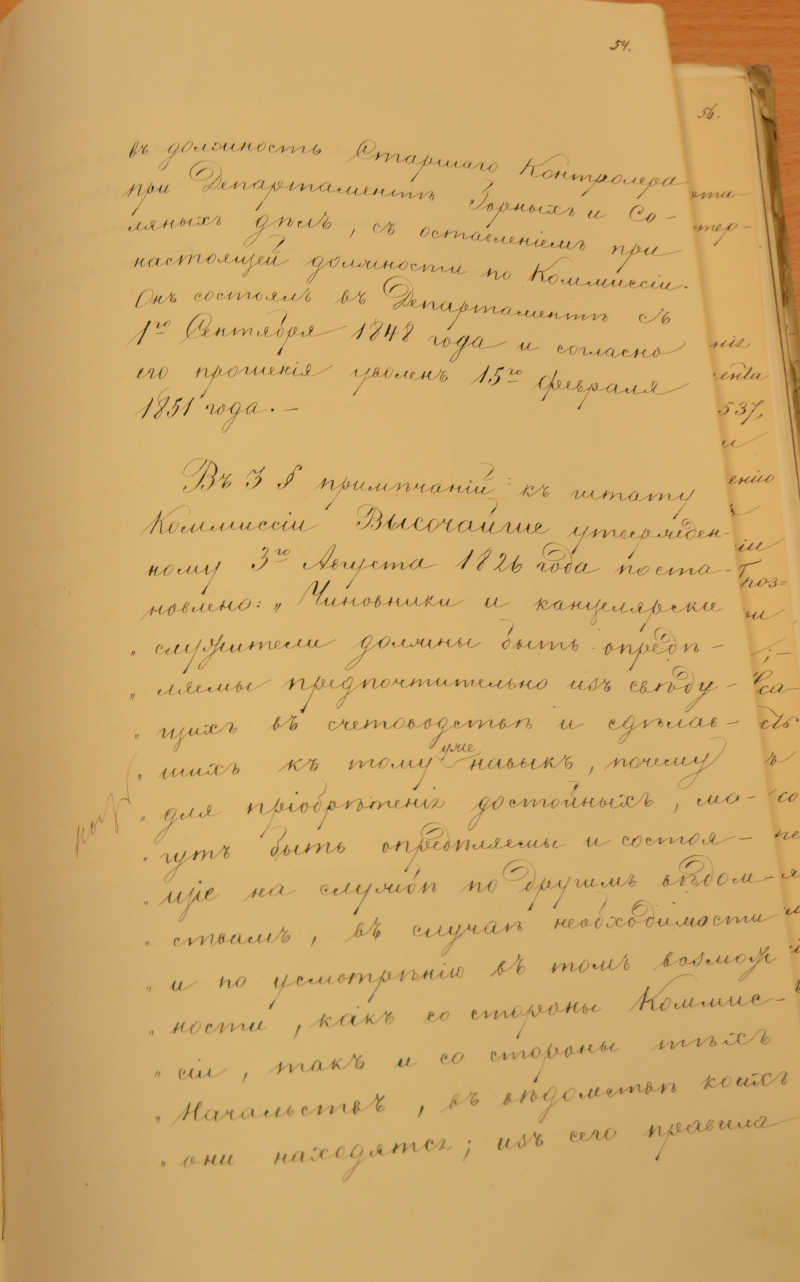 54.
въ должность Старшаго Контролера
при Департаментѣ Горныхъ и Со-
ляныхъ дѣлъ, съ оставленіемъ при
настоящей должности по Коммиссіи.
Онъ состоялъ въ Департаментѣ съ
1го Сентября 1848 года и согласно
его прошенія уволенъ 15го февраля
1851 года. —
Въ 3 § примѣчаній къ штату
Коммиссіи Высочайше утвержден-
ному 3го Августа 1826 года поста-
новлено: „Чиновники и канцелярскіе
„ служители должны быть опредѣ-
„ ляемы предпочтительно изъ свѣду-
„ щихъ въ счетоводствѣ и сдѣлав-
„ шихъ къ тому уже навыкъ, почему
„ для пріобрѣтенія достойныхъ, мо-
„ гутъ быть опредѣляемы и состоя-
„ щіе на службѣ по другимъ вѣдом-
„ ствамъ, въ случаѣ необходимости
„ и по усмотрѣнію въ томъ возмож
„ ности, какъ со стороны Коммис-
„ сіи, такъ и со стороны тѣхъ
„ Начальствъ, въ вѣдомствѣ коихъ
„ они находятся; изъ сего правила
56.
537,
и